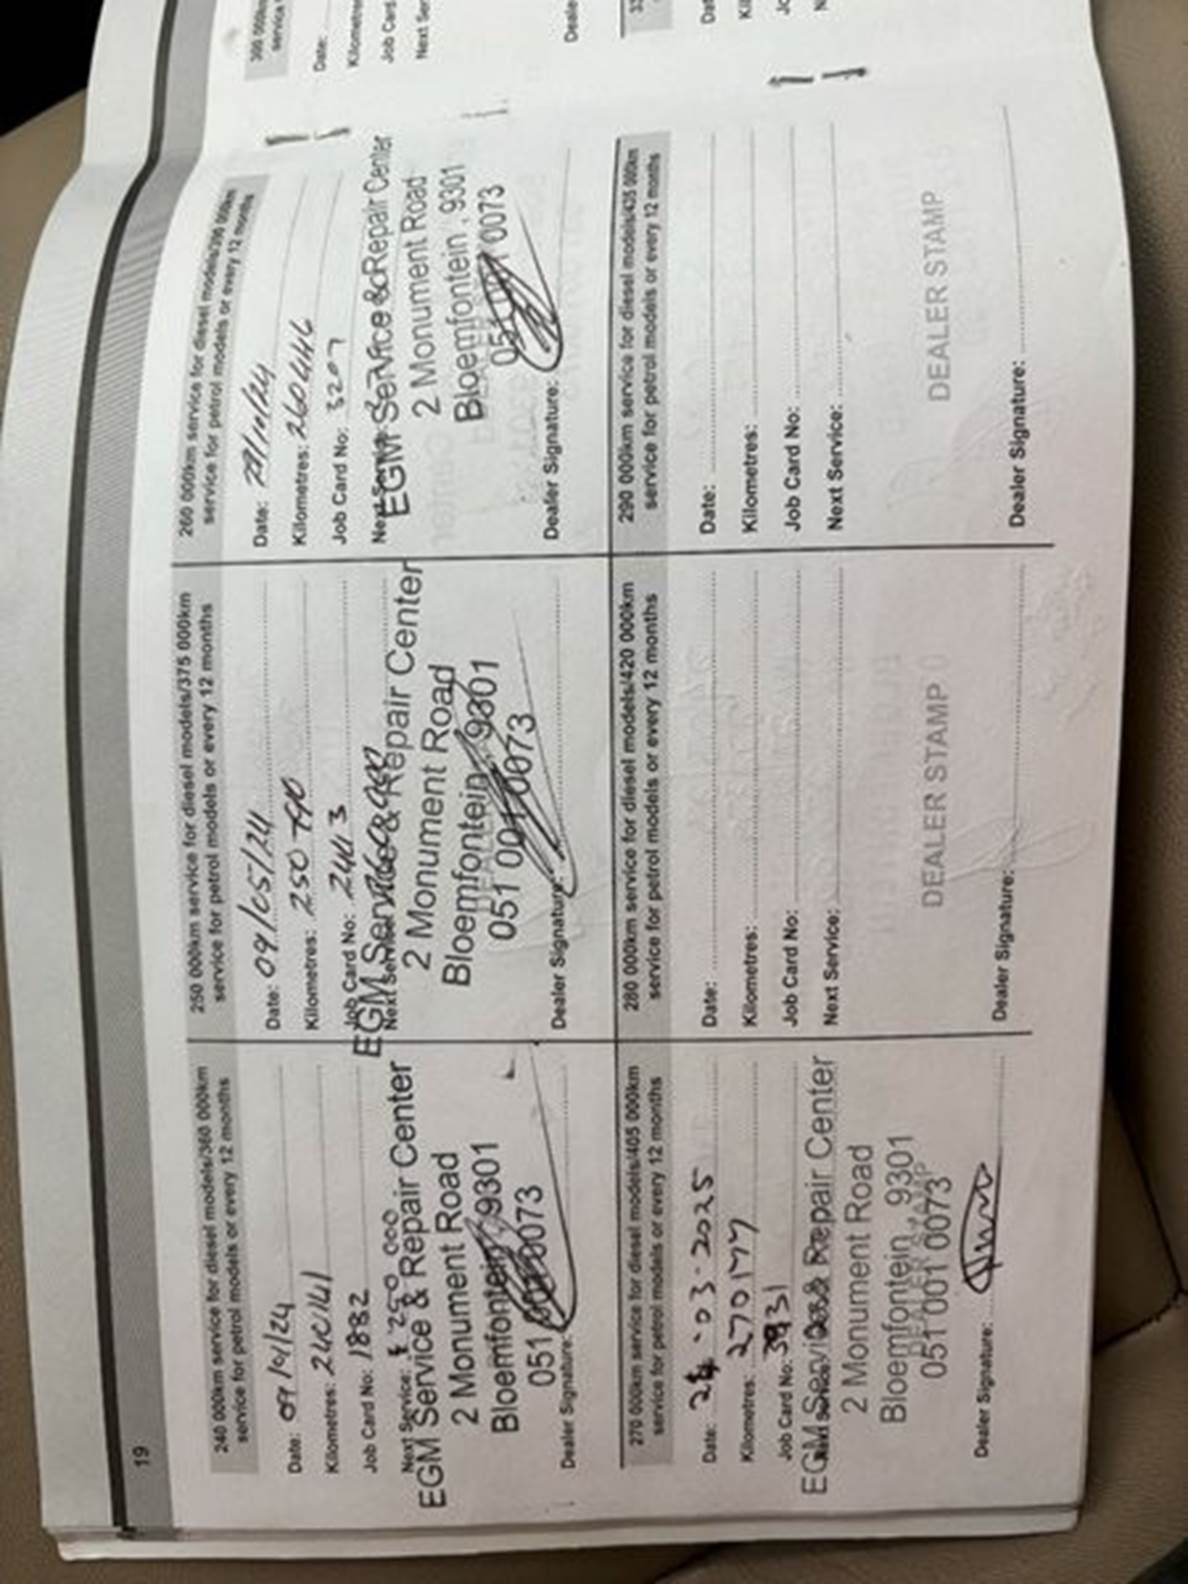 19
240 000km service for diesel models/360 000km
service for petrol models or every 12 months
Date:
Kilometres:
Job Card No: 1882
Next Service: 250 000
EGM Service & Repair Center
2 Monument Road
Bloemfontein, 9301
051 001 0073
Dealer Signature:
250 000km service for diesel models/375 000km
service for petrol models or every 12 months
Date: 09/05/24
Kilometres: 250
Job Card No: 2403
Next Service:
EGM Service & Repair Center
2 Monument Road
Bloemfontein, 9301
051 001 0073
Dealer Signature:
260 000km service for diesel models/390 000km
service for petrol models or every 12 months
Date:
Kilometres: 260446
Job Card No: 3207
Next Service:
EGM Service & Repair Center
2 Monument Road
Bloemfontein, 9301
051 001 0073
Dealer Signature:
270 000km service for diesel models/405 000km
service for petrol models or every 12 months
Date: 03-2025
Kilometres: 270177
Job Card No: 3931
EGM Service & Repair Center
2 Monument Road
Bloemfontein, 9301
051 001 0073
DEALER STAMP
Dealer Signature:
280 000km service for diesel models/420 000km
service for petrol models or every 12 months
Date:
Kilometres:
Job Card No:
Next Service:
DEALER STAMP
Dealer Signature:
290 000km service for diesel models/435 000km
service for petrol models or every 12 months
Date:
Kilometres:
Job Card No:
Next Service:
DEALER STAMP
Dealer Signature:
300 000km
service
Date:
Kilometres
Job Card
Next Ser
Deale